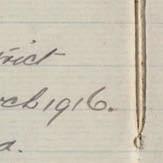 trict
rch 1916.
a.